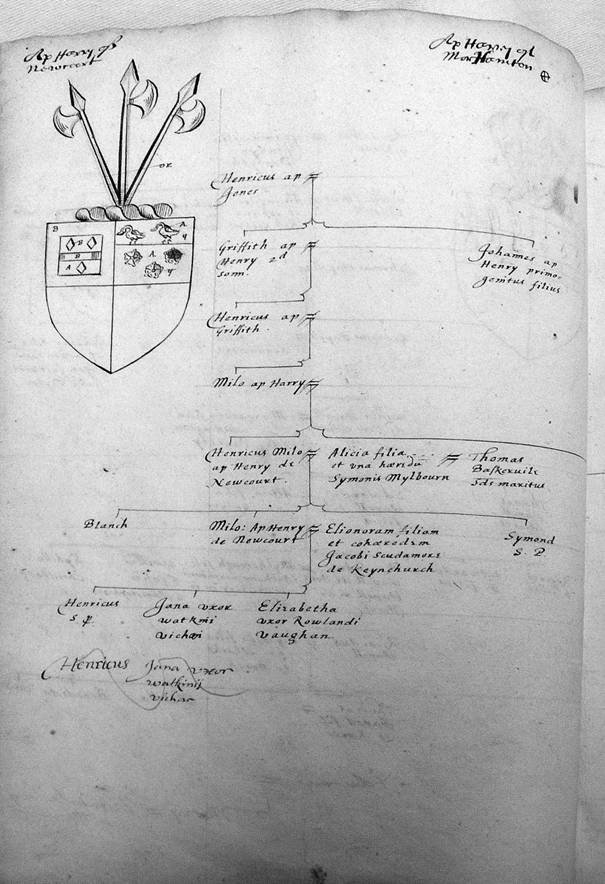 Ap Harry of
Newcort
Ap Harry of
Mor Hamton
or
B
A
B
B
A
A
Henricus ap
Jones
Griffith ap
Henry 2d
sonn.
Johannes ap
Henry primo-
genitus filius
Henricus ap
Griffith.
Milo ap Harry
Henricus Milo
ap Henry de
Newcourt.
Alicia filia
et vna hæredū
Symonis Mylbourn
Thomas
Baskervile
2ds maritus
Blanch
Milo: Ap Henry
de Newcourt
Elionoram filiam
et cohæredem
Jacobi Scudamore
de Keynchurch
Symond
S. P
Henricus
s p.
Jana vxor
watkini
vichan
Elizabetha
vxor Rowlandi
vaughan
Henricus
Jana vxor
watkinij
vichac